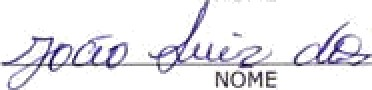 João Luiz dos
NOME